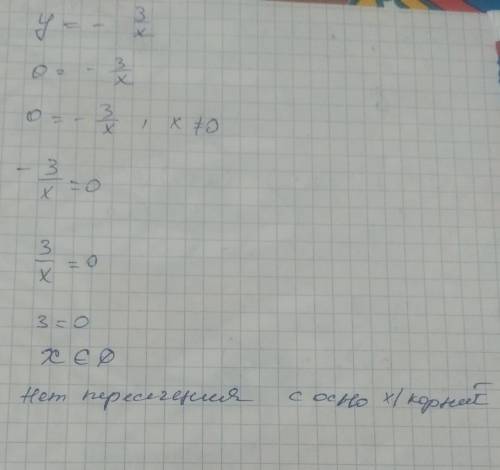 y = - 3/x
0 = - 3/x
0 = - 3/x , x ≠ 0
- 3/x = 0
3/x = 0
3 = 0
x ∈ ∅
Нет пересечения с осью x/корней